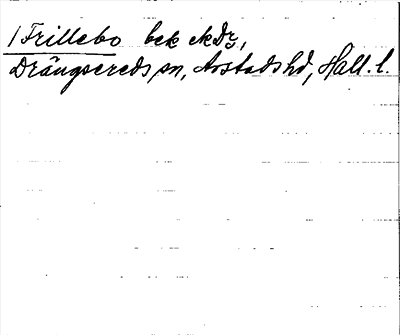 /Frillebo bek ekDr,
Drängsereds sn, Årstads hd, Hall. l.